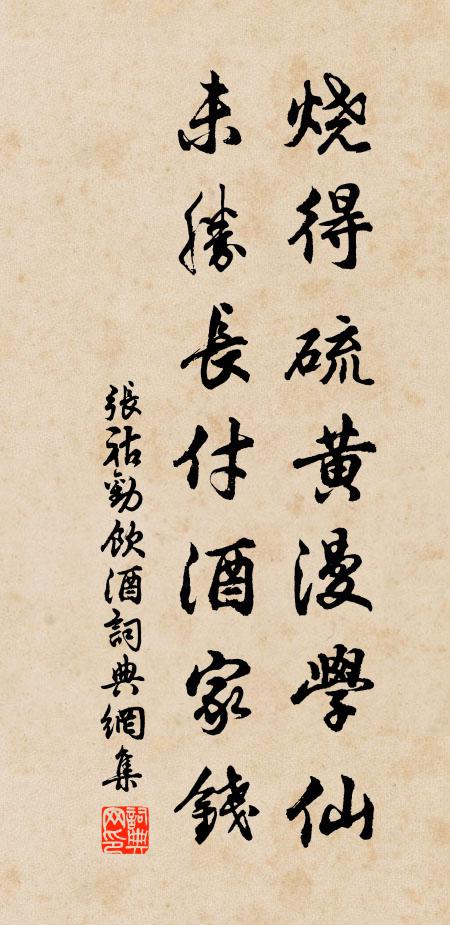 烧得硫黄漫學仙
未勝長付酒家錢
張祜勸飲酒詞典網集
詞典網印